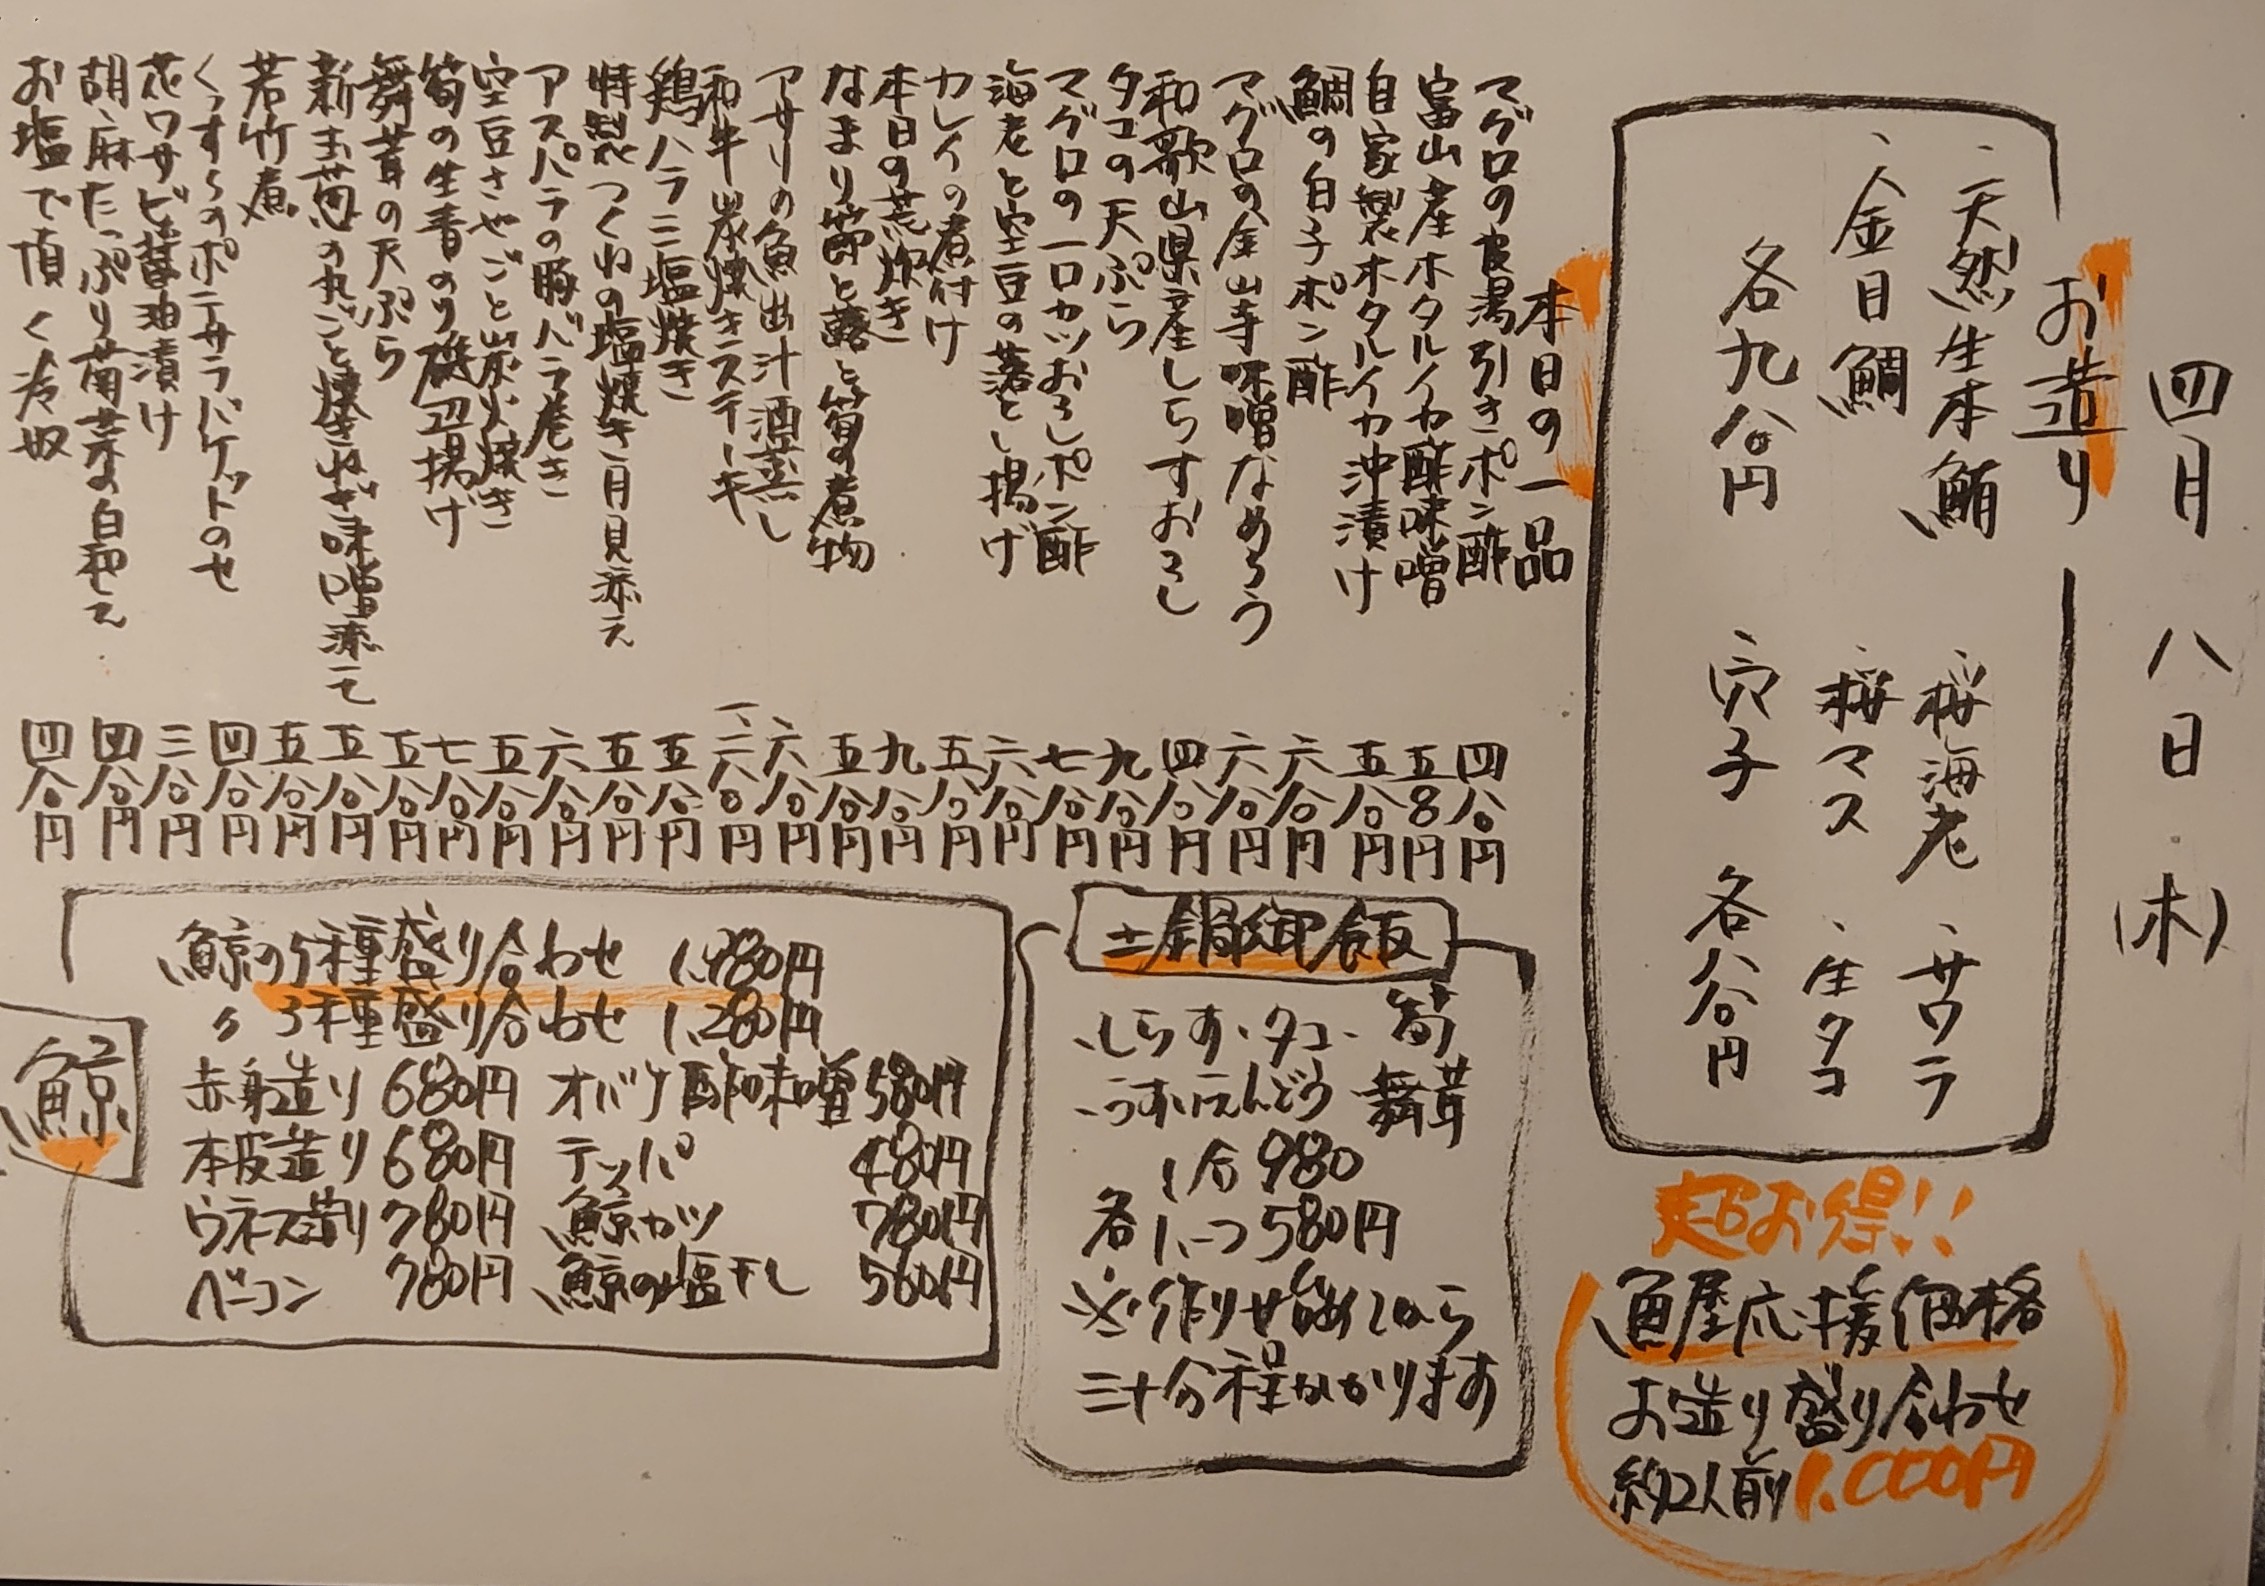 四月八日(木)
お造り
、天然生本鮪
、金目鯛
各九八〇円
、桜海老、サワラ
、桜マス、生タコ
、穴子 各八八〇円
本日の一品
マグロの皮湯引きポン酢 四八〇円
富山産ホタルイカ酢味噌 五八〇円
自家製ホタルイカ沖漬け 五八〇円
鯛の白子ポン酢 六八〇円
マグロの金山寺味噌なめろう 六八〇円
和歌山県産しらすおろし 四八〇円
タコの天ぷら 九八〇円
マグロの一口カツおろしポン酢 七八〇円
海老と空豆の落とし揚げ 六八〇円
カレイの煮付け 五八〇円
本日の荒炊き 九八〇円
なまり節と蕗と筍の煮物 五八〇円
アサリの魚出汁酒蒸し 六八〇円
和牛炭焼きステーキ 一、二八〇円
鶏ハラミ塩焼き 五八〇円
特製つくねの塩焼き月見添え 五八〇円
アスパラの豚バラ巻き 六八〇円
空豆さやごと炭火焼き 五八〇円
筍の生青のり磯辺揚げ 七八〇円
舞茸の天ぷら 五八〇円
新玉葱の丸ごと焼きねぎ味噌添えて 五八〇円
若竹煮 五八〇円
くっすらのポテサラバケットのせ 四八〇円
花ワサビ醤油漬け 三八〇円
胡麻たっぷり菊菜の白和え 四八〇円
お塩で頂く冷奴 四八〇円
超お得!!
魚屋応援価格
お造り盛り合わせ
約2人前1.000円
土鍋御飯
、しらす、タコ、筍
、うすいえんどう 舞茸
1合980
各1.つ580円
※作りせ始めてから
三十分程かかります
鯨
鯨の5種盛り合わせ 1.980円
〃 3種盛り合わせ 1.280円
赤身造り 680円 オバケ酢味噌 580円
本皮造り 680円 テッパ 480円
ウネス造り 780円 鯨カツ 780円
ベーコン 780円 鯨の塩干し 560円